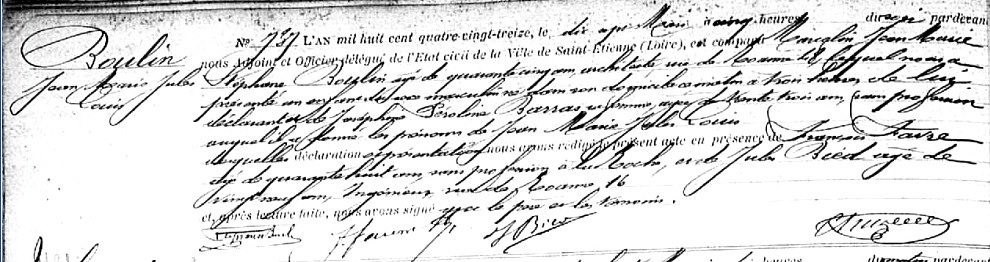 No 737 L'AN mil huit cent quatre-vingt-treize, le dix sept Mars à cinq heures du soir pardevant
Boulin nous Adjoint et Officier délégué de l'Etat civil de la Ville de Saint-Etienne (Loire), est comparu Jean Marie
Jean Marie Jules Stéphane Boulin âgé de quarante cinq ans, architecte rue de Roanne lequel nous a
Louis présenté un enfant du sexe masculin né dans son domicile ce matin à trois heures de lui
déclarant et de Joséphine Péroline Barras sa femme, âgée de trente trois ans, sans profession
auquel il a donné les prénoms de Jean Marie Jules Louis
lesquelles déclaration et présentation nous avons rédigé le présent acte en présence de François Favre
âgé de quarante huit ans, sans profession à et de Jules Biéd âgé de
vingt neuf ans, Ingénieur rue de Roanne 16
et, après lecture faite, nous avons signé avec le père et les témoins.
heures du matin pardevant